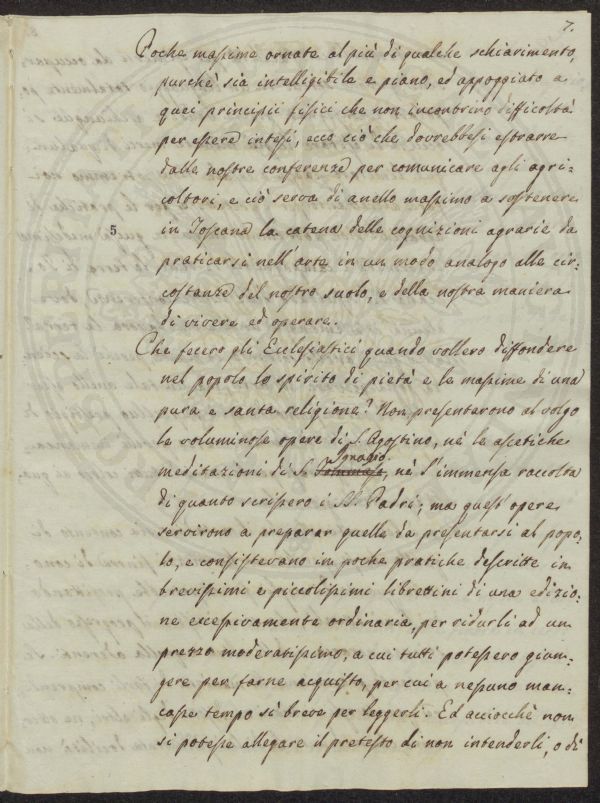 7.
Poche massime ornate al più di qualche schiarimento,
purchè sia intelligibile e piano, ed appoggiato a
quei principii fisici che non incontrino difficoltà
per essere intesi, ecco ciò che dovrebbesi estrarre
dalle nostre conferenze per comunicare agli agri=
coltori, e ciò serva di anello massimo a sostenere
5 in Toscana la catena delle cognizioni agrarie da
praticarsi nell'arte in un modo analogo alle cir=
costanze del nostro suolo, e della nostra maniera
di vivere ed operare.
Che fecero gli Ecclesiastici quando vollero diffondere
nel popolo lo spirito di pietà e le massime di una
pura e santa religione? Non presentarono al volgo
le voluminose opere di S. Agostino, nè le ascetiche
Ignazio
meditazioni di S. , nè l'immensa raccolta
di quanto scrissero i SS. Padri; ma quest'opere
servirono a preparar quelle da presentarsi al popo=
lo, e consistevano in poche pratiche descritte in
brevissimi e piccolissimi librettini di una edizio=
ne eccessivamente ordinaria, per ridurli ad un
prezzo moderatissimo, a cui tutti potessero giun=
gere per farne acquisto, per cui a nessuno man=
casse tempo sì breve per leggerli. Ed acciocchè non
si potesse allegare il pretesto di non intenderli, o di